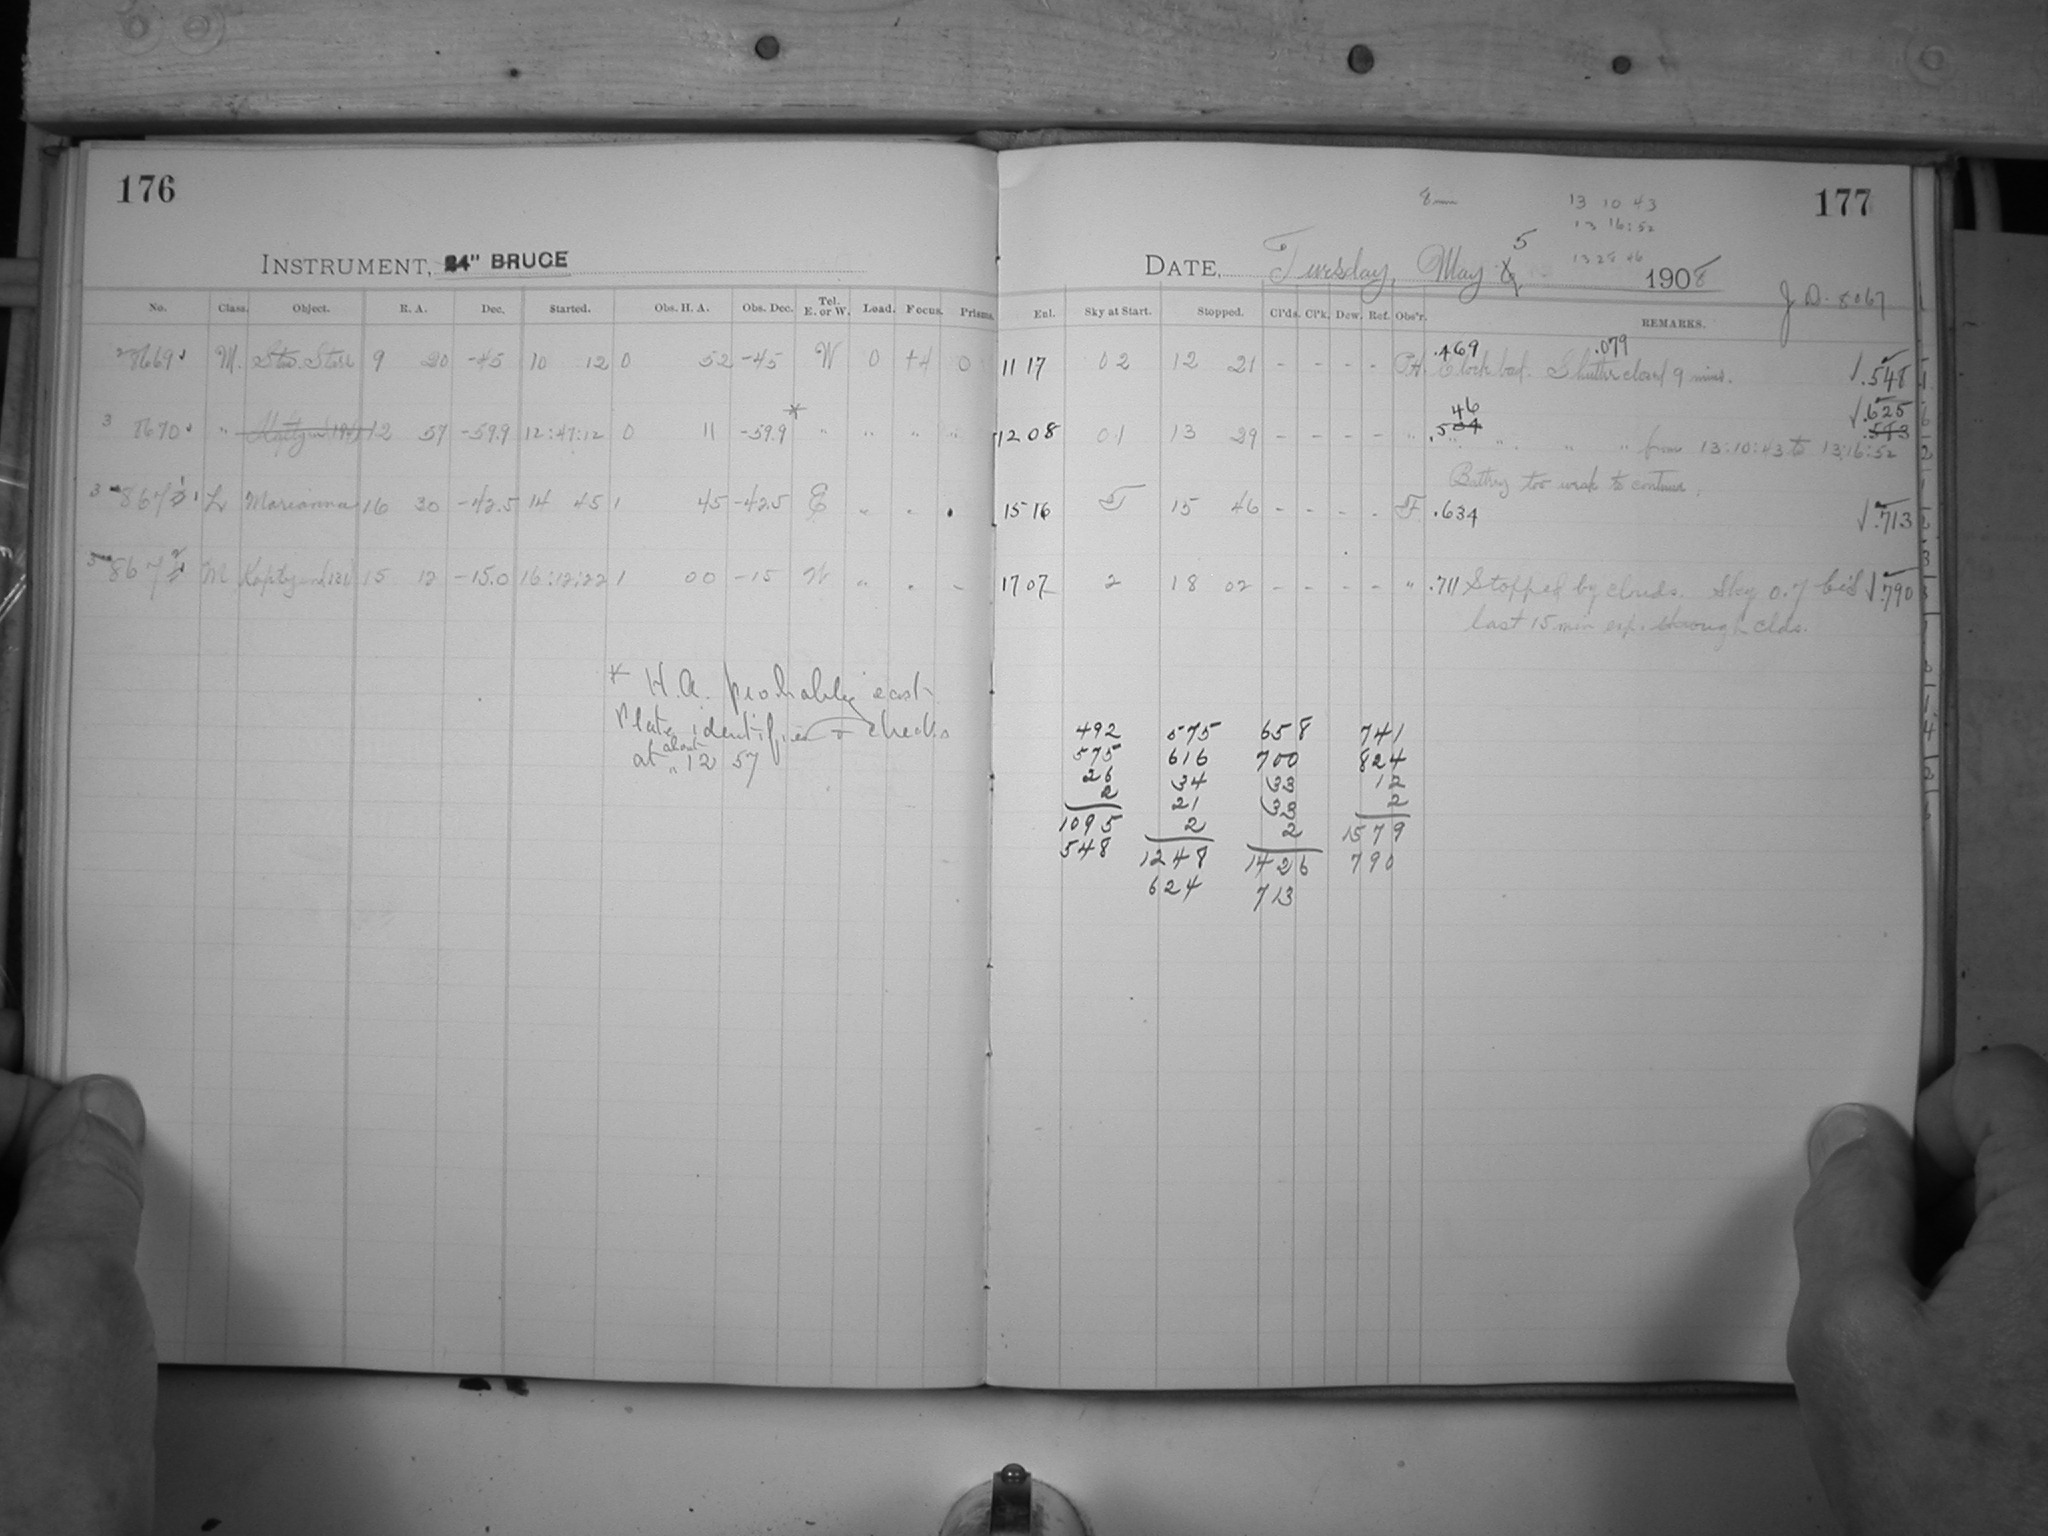 176
INSTRUMENT, 24" BRUCE
No. Class. Object. R. A. Dec. Started. Obs. H. A. Obs. Dec. Tel. E. or W. Load. Focus. Prisms.
8669 M. Sta. Stars 9 20 -45 10 12 0 52 -45 W 0 +4 0
3 8670 " 12 57 -59.9 12:47:12 0 11 -59.9 * " " " "
3 8671 L Marianna 16 30 -42.5 14 45 1 45 -42.5 E " "
3 8672 M 15 12 -15.0 16:12:22 1 00 -15 W " " -
* H.A. probably east
Plate identified & checks
at about 12 57
177
8 min
13 10 43
13 16:52
DATE, Tuesday, May 5 1908
J D. 8067
Ent. Sky at Start. Stopped. Cl'ds. Cl'k. Dew. Ref. Obs'r. REMARKS.
11 17 02 12 21 - - - - .469 Clock bad. Shutter closed 9 mins. .079 .548
12 08 01 13 29 - - - - " 46 .534 " " " " from 13:10:43 to 13:16:52 .625 .583
Battery too weak to continue.
15 16 15 46 - - - - .634 .713
17 07 2 18 02 - - - - " .711 Stopped by clouds. Sky 0.7 .790
last 15 min exp. through clds.
492 575 658 741
575 616 700 824
26 34 33 12
2 21 33 2
1095 2 2 1579
548 1248 1426 790
624 713